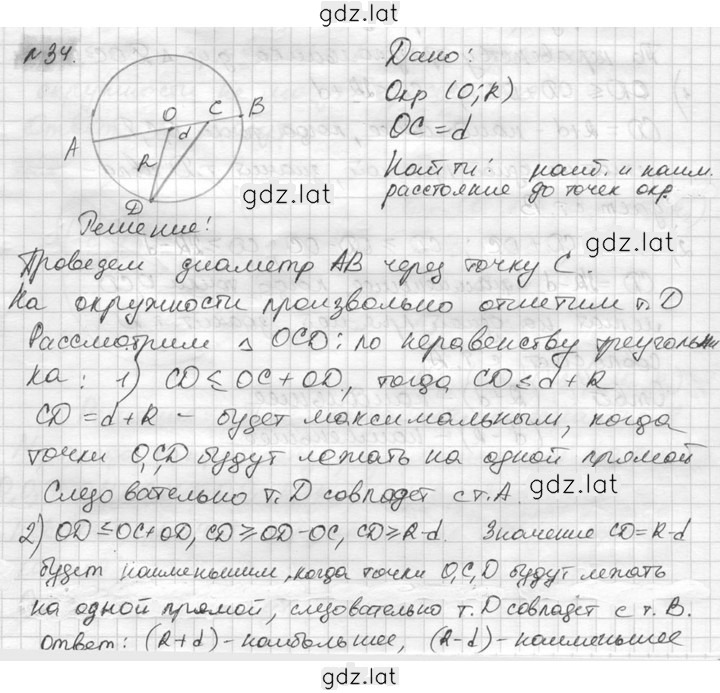 gdz.lat
№34.
A
O
d
C
B
R
D
Дано:
Окр (O; R)
OC = d
Найти: наиб. и наим.
расстояние до точек окр.
gdz.lat
Решение:
gdz.lat
Проведем диаметр AB через точку C.
На окружности произвольно отметим т. D
Рассмотрим △ OCD: по неравенству треугольни
ка: 1) CD ≤ OC + OD, тогда CD ≤ d + R
CD = d + R – будет максимальным, когда
точки O,C,D будут лежать на одной прямой
gdz.lat
Следовательно т. D совпадет с т. A.
2) OD ≤ OC + OD, CD ≥ OD – OC, CD ≥ R – d. Значение CD = R – d
будет наименьшим, когда точки O,C,D будут лежать
на одной прямой, следовательно т. D совпадет с т. B.
ответ: (R + d) – наибольшее, (R – d) – наименьшее
gdz.lat